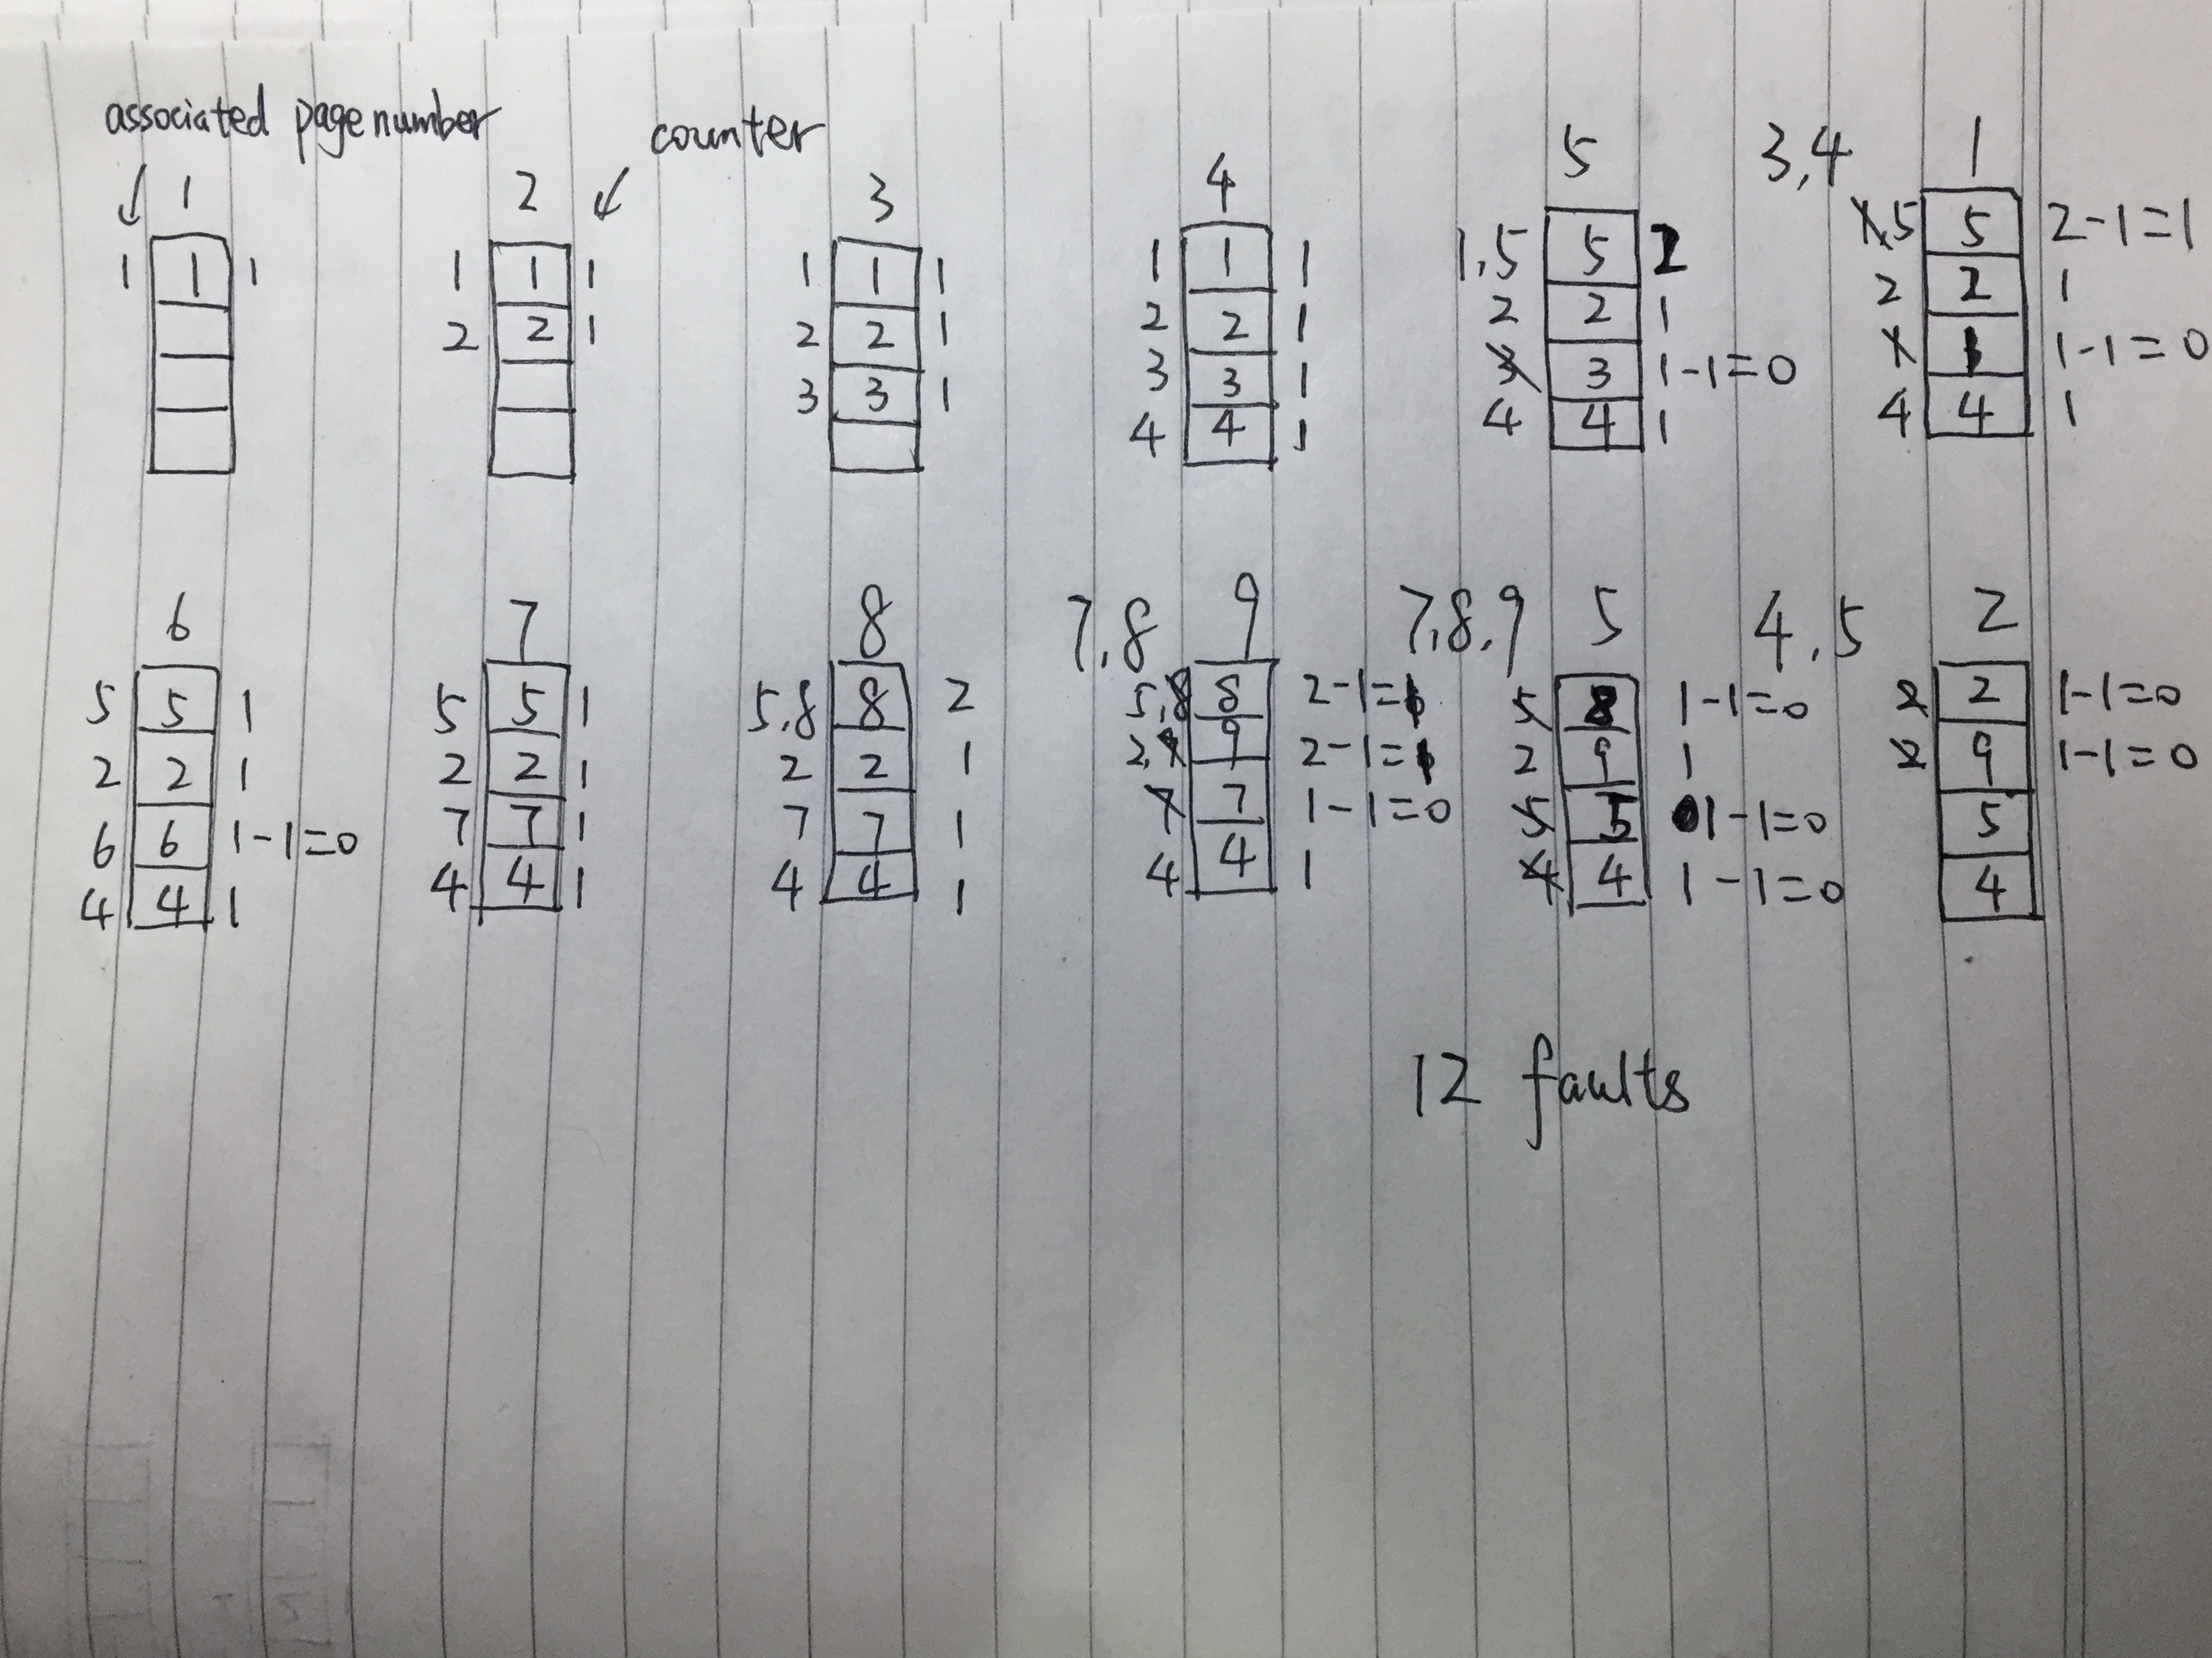 associated page number counter
1 2 3 4 5 3,4 1
1 1 1
1 1 1
2 2 1
1 1 1
2 2 1
3 3 1
1 1 1
2 2 1
3 3 1
4 4 1
1,5 5 2
2 2 1
3 3 1-1=0
4 4 1
1,5 5 2-1=1
2 2 1
1 1 1-1=0
4 4 1
6 7 8 7,8 9 7,8,9 5 4,5 2
5 5 1
2 2 1
6 6 1-1=0
4 4 1
5 5 1
2 2 1
7 7 1
4 4 1
5,8 8 2
2 2 1
7 7 1
4 4 1
5,8 8 2-1=1
2,9 9 2-1=1
7 7 1-1=0
4 4 1
5 8 1-1=0
2 9 1
5 5 1-1=0
4 4 1-1=0
2 2 1-1=0
2 9 1-1=0
5
4
12 faults